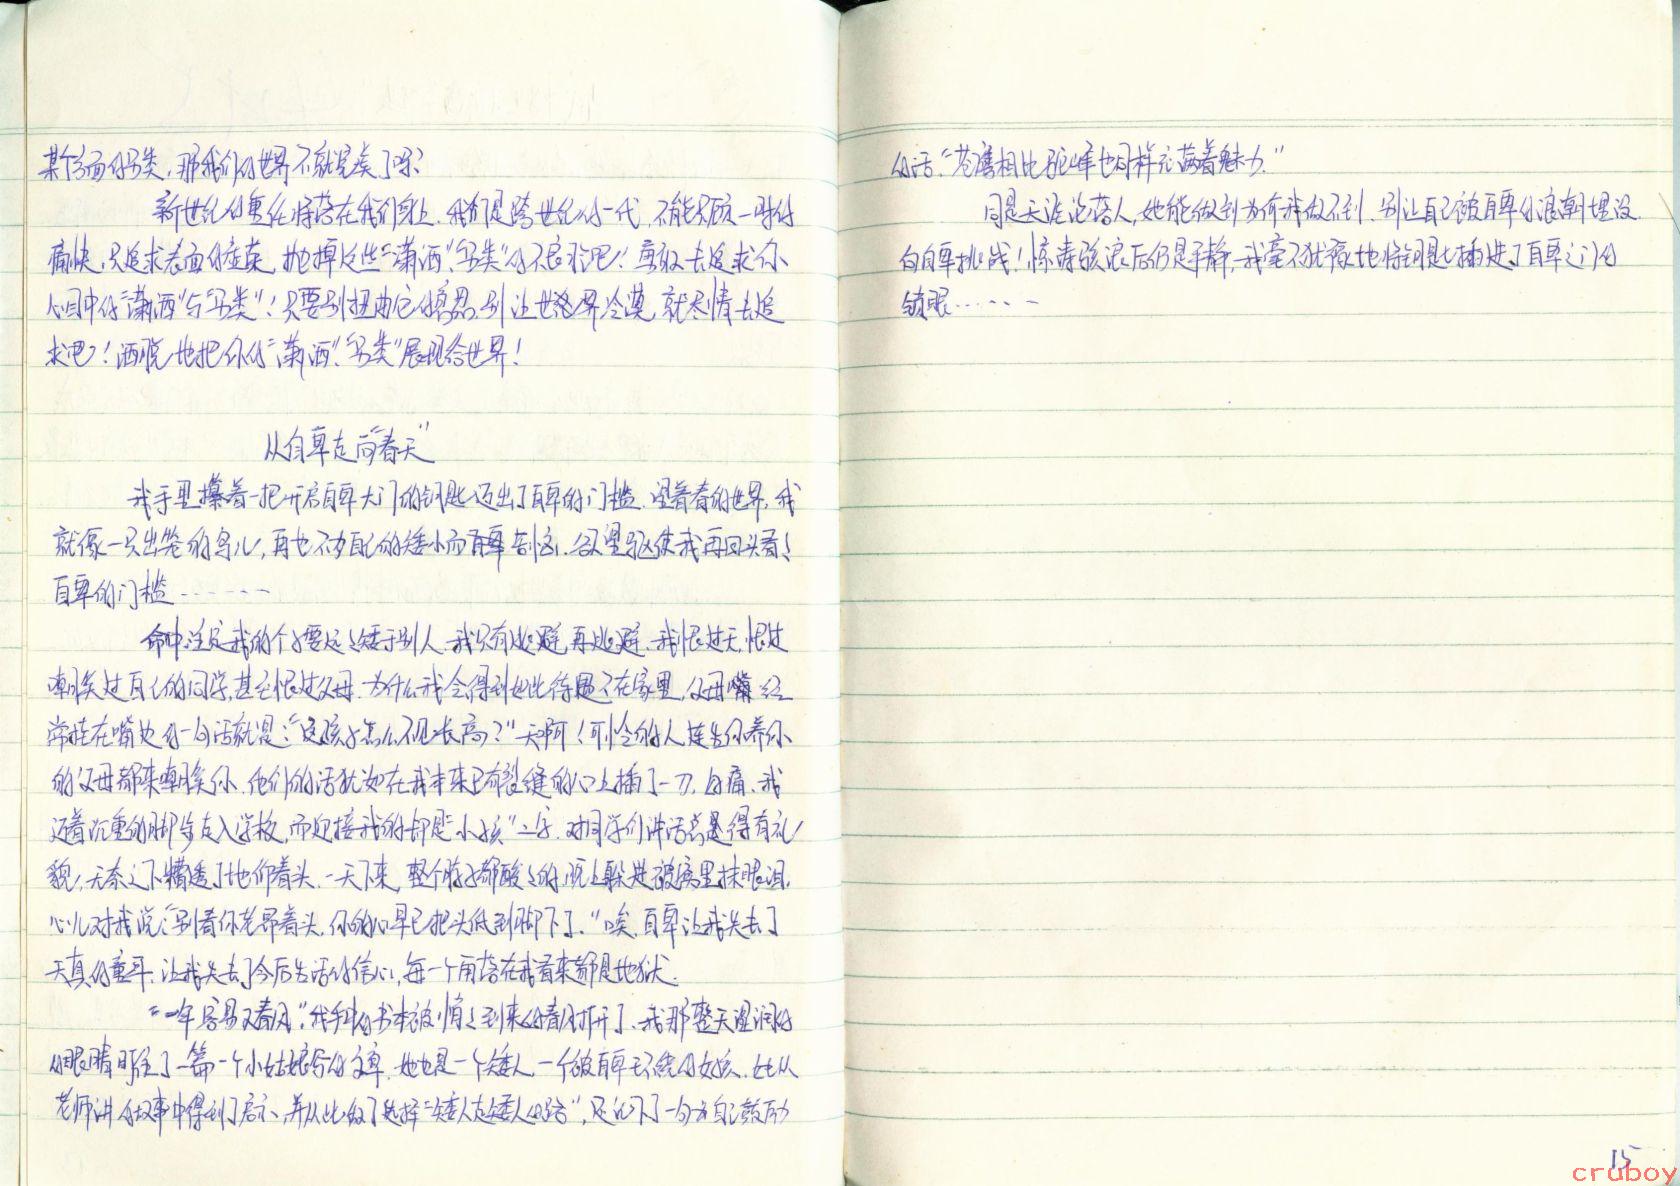 某个方面的另类,那我们的世界不就完美了嘛?
新世纪的重任将落在我们身上,我们是跨世纪的一代,不能只顾一时的
痛快,只追求表面的虚荣,抛掉这些“潇洒”、“另类”的不良形吧!勇敢去追求你
心目中的“潇洒”与“另类”!只要别扭曲它的容忍,别让世界冷漠,就尽情去追
求吧!洒脱地把你的“潇洒”、“另类”展现给世界!
从自卑走向“春天”
我手里攥着一把开启自卑大门的钥匙迈出了自卑的门槛.望着春的世界,我
就像一只出笼的鸟儿,再也不为自己的矮小而自卑苦恼.欲望驱使我再回头看看
自卑的门槛……
命中注定我的个子要远远矮于别人.我只有逃避,再逃避.我恨过天,恨过
嘲笑过自己的同学,甚至恨过父母.为什么我会得到如此待遇?在家里,父母嘴经
常挂在嘴边的一句话就是:“这孩子怎么不见长高?”天啊!可怜的人连生你养你
的父母都来嘲笑你.他们的话犹如在我本来已有裂缝的心上插了一刀,好痛.我
迈着沉重的脚步走入学校,而迎接我的却是“小孩”二字.对同学们讲话总是得有礼
貌,无奈之下糟透了地仰着头.一天下来,整个脖子都酸酸的.晚上躲进被窝里抹眼泪.
心儿对我说:“别看你老昂着头,你的心早已把头低到脚下了.”唉,自卑让我失去了
天真的童年,让我失去了今后生活的信心,每一个角落在我看来都是地狱.
“一年容易又春风”,我手中的书本被悄悄到来的春风打开了.我那整天湿润的
的眼睛盯住了一篇一个小姑娘写的文章.她也是一个矮人,一个被自卑环绕的女孩.她从
老师讲的故事中得到了启示,并从此做了选择“矮人走矮人的路”,还记下了一句为自己鼓励
的话:“苍鹰相比驼峰也同样充满着魅力.”
同是天涯沦落人,她能做到为何我做不到.别让自己被自卑的浪潮埋没.
向自卑挑战!惊涛骇浪后仍是平静,我毫不犹豫地将钥匙插进了自卑之门的
锁眼……
15
cruboy